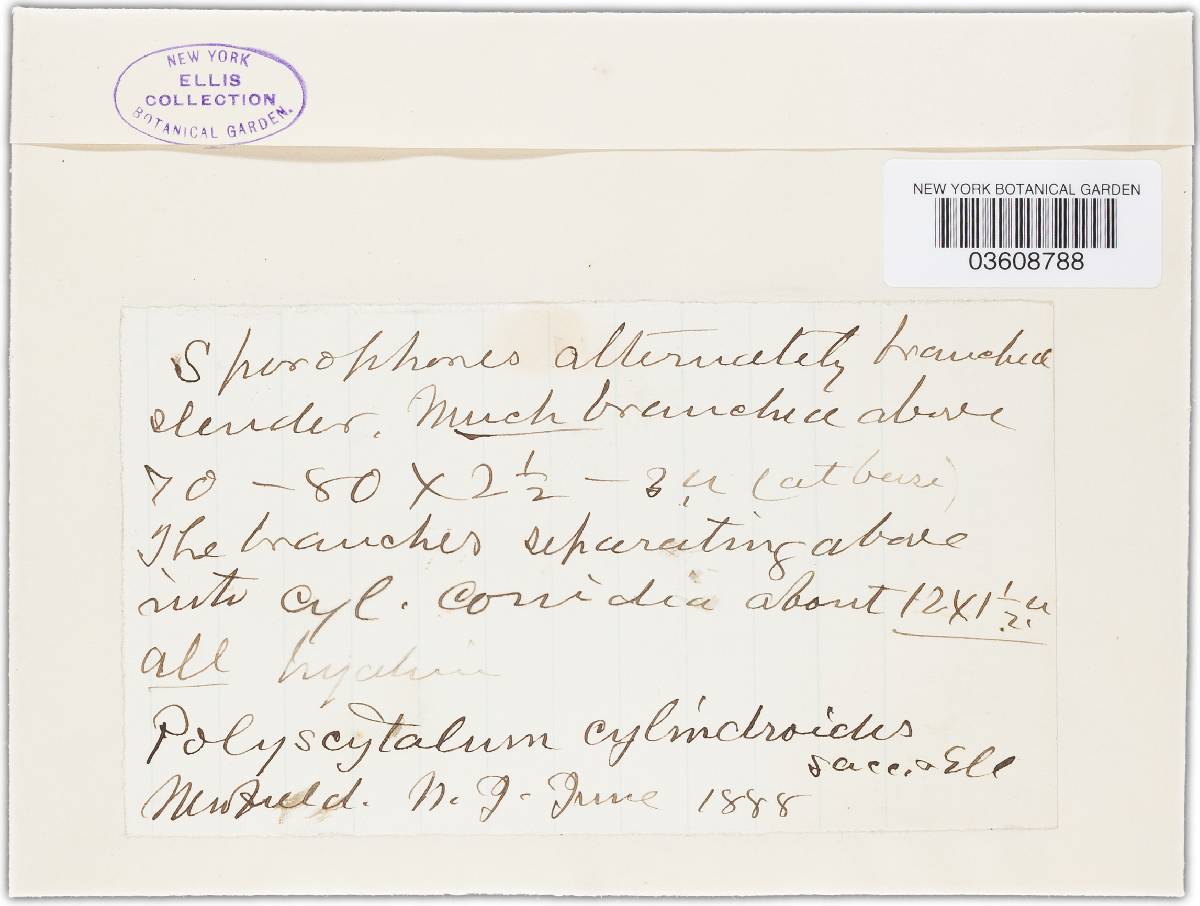 NEW YORK
ELLIS
COLLECTION
BOTANICAL GARDEN.
NEW YORK BOTANICAL GARDEN
03608788
Sporophores alternately branched
slender. Much branched above
70 - 80 X 2 1/2 - 3 µ (at base)
The branches separating above
into cyl. conidia about 12 X 1 1/2 µ
all hyalin
Polyscytalum cylindroides
Sacc. & Ell
Newfield. N. J. June 1888